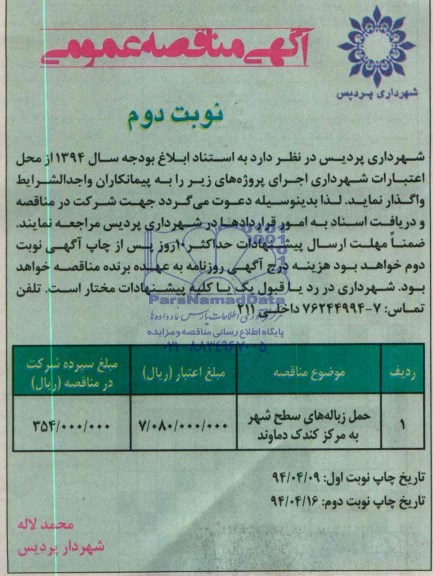 آگهی مناقصه عمومی
شهرداری پردیس
نوبت دوم
شهرداری پردیس در نظر دارد به استناد ابلاغ بودجه سال ۱۳۹۴ از محل
اعتبارات شهرداری اجرای پروژه‌های زیر را به پیمانکاران واجدالشرایط
واگذار نماید. لذا بدینوسیله دعوت می‌گردد جهت شرکت در مناقصه
و دریافت اسناد به امور قراردادها در شهرداری پردیس مراجعه نمایند.
ضمناً مهلت ارسال پیشنهادات حداکثر ۱۰روز پس از چاپ آگهی نوبت
دوم خواهد بود هزینه درج آگهی روزنامه به عهده برنده مناقصه خواهد
بود. شهرداری در رد یا قبول یک یا کلیه پیشنهادات مختار است. تلفن
تماس: ۷-۷۶۲۴۴۹۹۴ داخلی ۲۱۱
ParsNamadData
پایگاه اطلاع رسانی مناقصه و مزایده
۰۲۱-۸۸۳۴۹۶۷۰-۵
ردیف موضوع مناقصه مبلغ اعتبار (ریال) مبلغ سپرده شرکت در مناقصه (ریال)
۱ حمل زباله‌های سطح شهر به مرکز کندک دماوند ۷/۰۸۰/۰۰۰/۰۰۰ ۳۵۴/۰۰۰/۰۰۰
تاریخ چاپ نوبت اول: ۹۴/۰۴/۰۹
تاریخ چاپ نوبت دوم: ۹۴/۰۴/۱۶
محمد لاله
شهردار پردیس